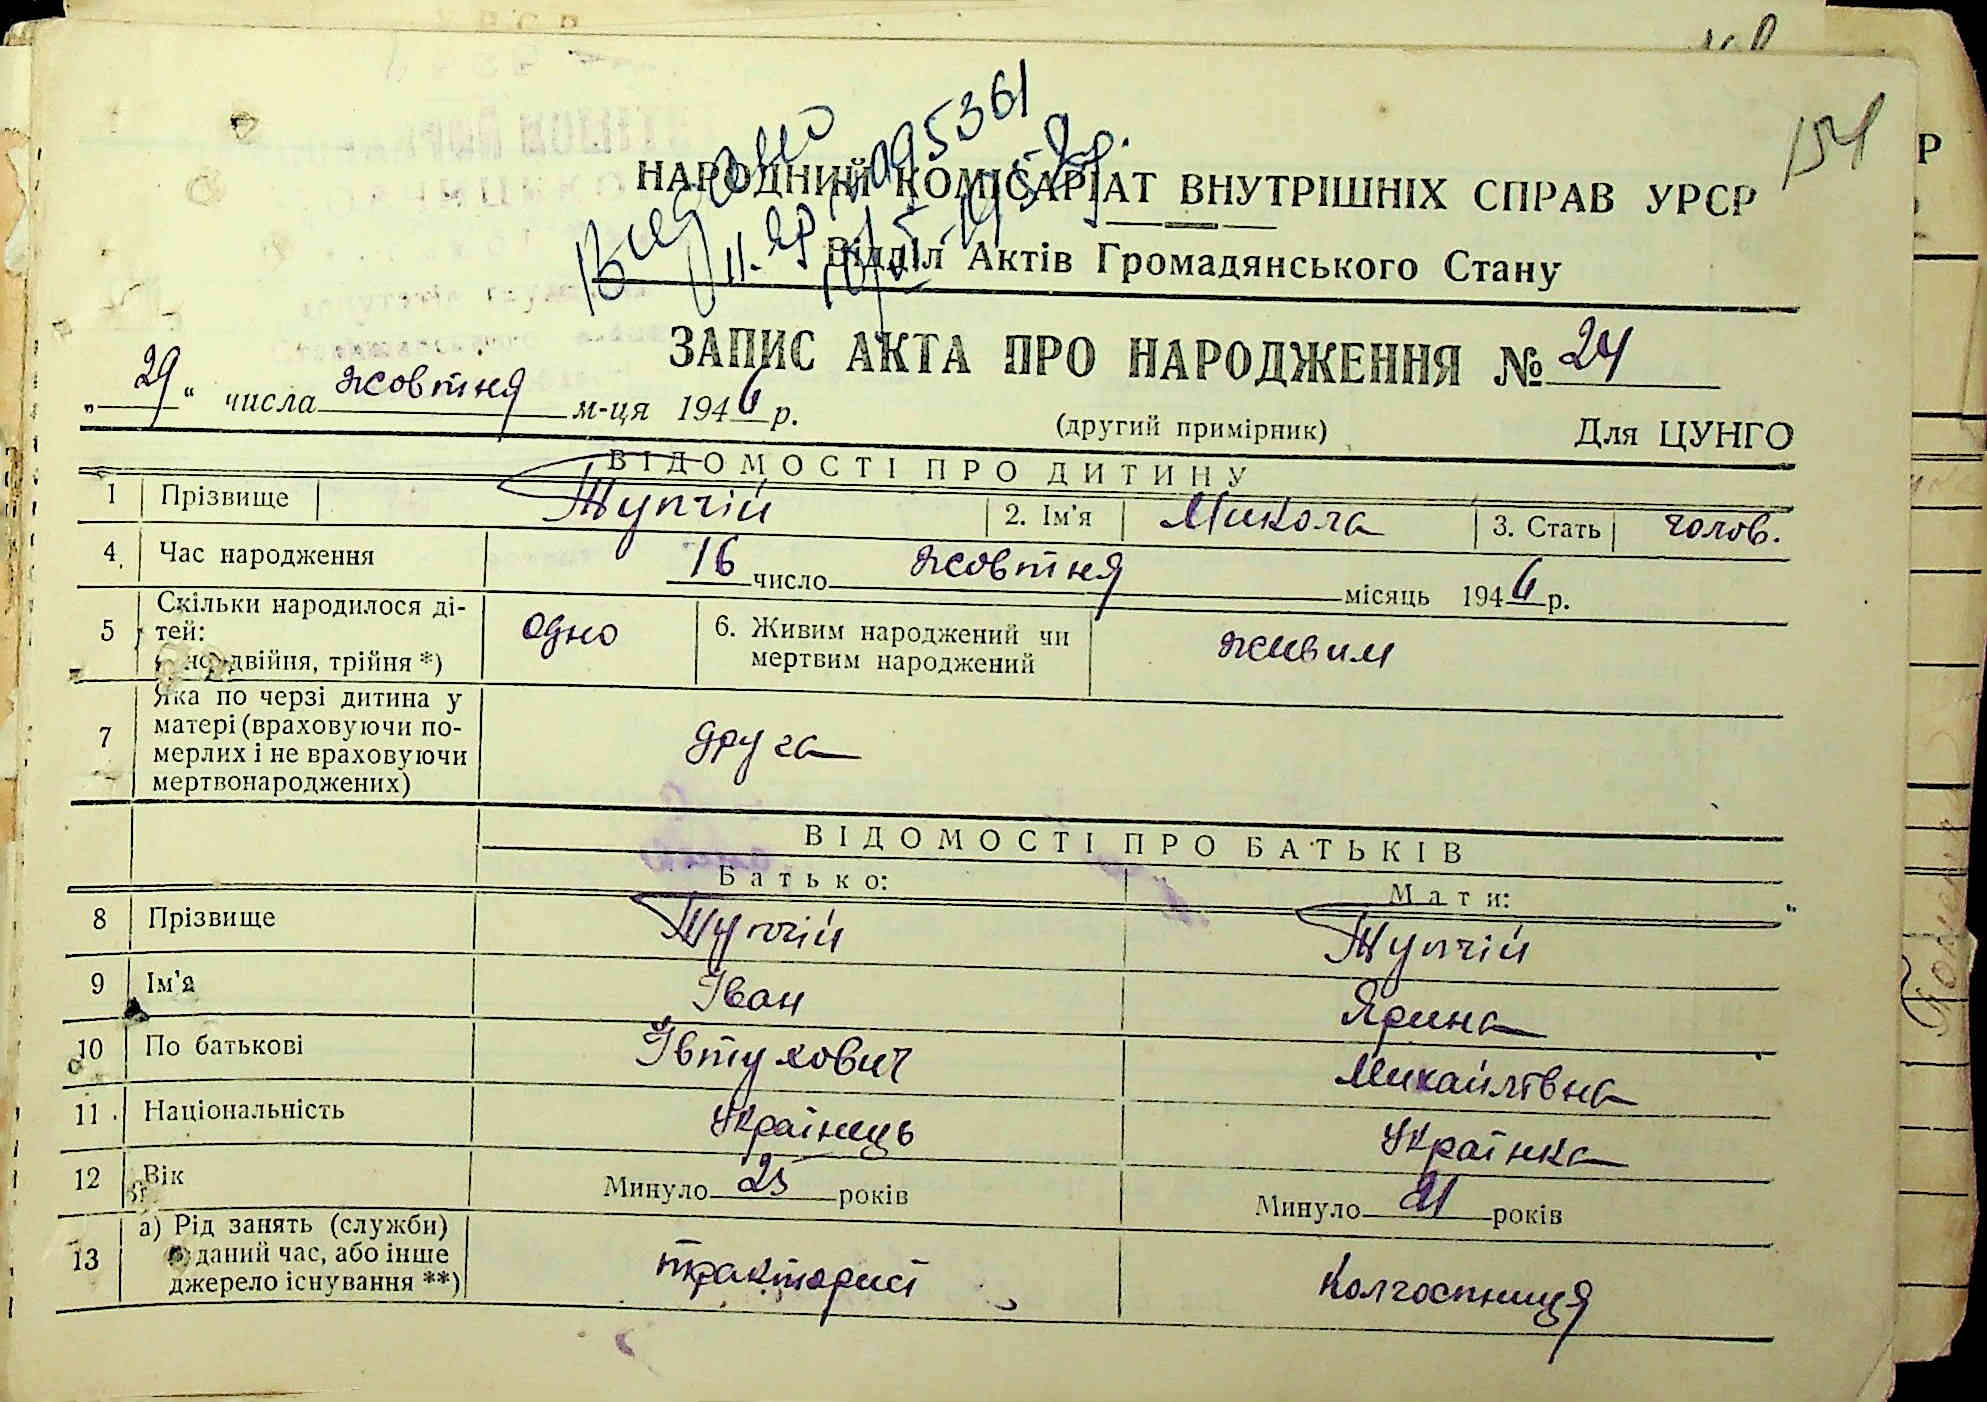 154
Видано
НАРОДНИЙ КОМІСАРІАТ ВНУТРІШНІХ СПРАВ УРСР
Відділ Актів Громадянського Стану
ЗАПИС АКТА ПРО НАРОДЖЕННЯ № 24
„29“ числа жовтня м-ця 1946 р.
(другий примірник) Для ЦУНГО
ВІДОМОСТІ ПРО ДИТИНУ
1 Прізвище Жупчій 2. Ім'я Микола 3. Стать голов.
4 Час народження 16 число жовтня місяць 1946 р.
5 Скільки народилося ді-
тей:
двійня, трійня *) одно 6. Живим народжений чи
мертвим народжений живим
7 Яка по черзі дитина у
матері (враховуючи по-
мерлих і не враховуючи
мертвонароджених) друга
ВІДОМОСТІ ПРО БАТЬКІВ
Батько: Мати:
8 Прізвище Жупчій Жупчій
9 Ім'я Іван Ярина
10 По батькові Івтухович Михайлівна
11 Національність Українець Українка
12 Вік Минуло 25 років Минуло 21 років
13 а) Рід занять (служби)
даний час, або інше
джерело існування **) тракторист Колгоспниця